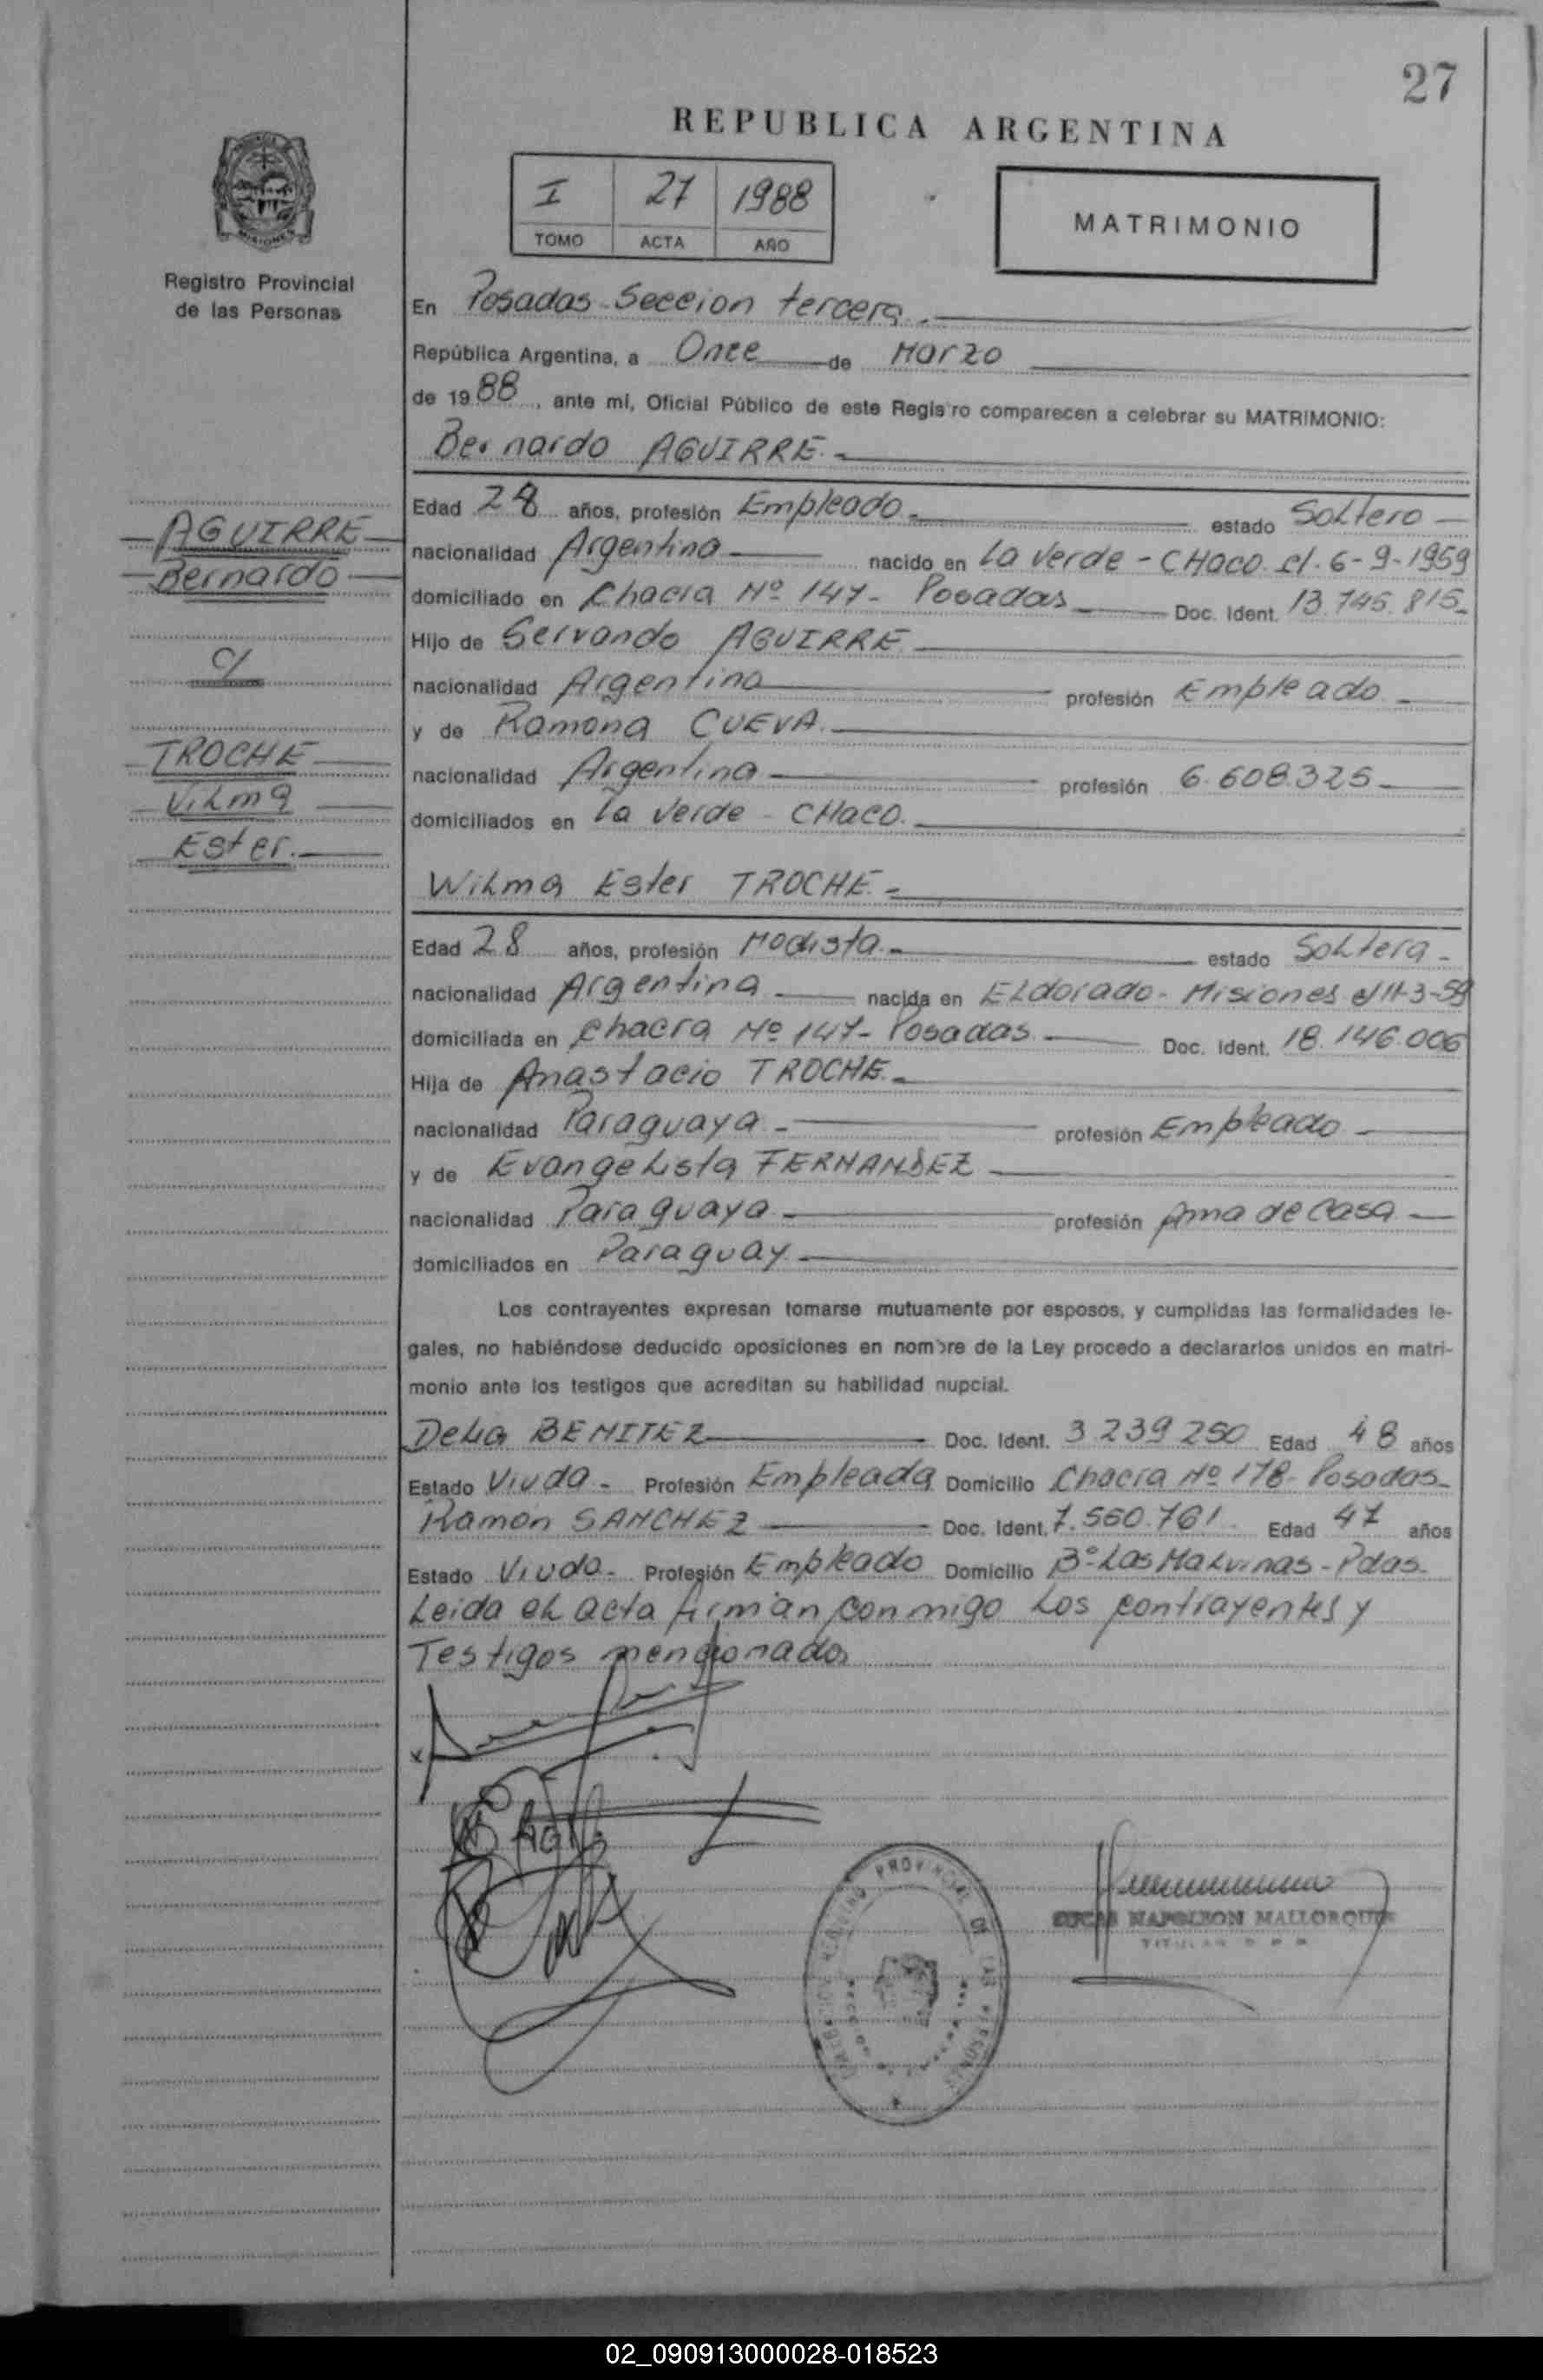 27
REPUBLICA ARGENTINA
I 27 1988
TOMO ACTA AÑO
MATRIMONIO
Registro Provincial
de las Personas
En Posadas - Seccion tercera.
República Argentina, a Once de Marzo
de 1988, ante mi, Oficial Público de este Registro comparecen a celebrar su MATRIMONIO:
Bernardo AGUIRRE.
Edad 28 años, profesión Empleado. estado Soltero
nacionalidad Argentina nacido en La Verde - CHaco. el. 6-9-1959
domiciliado en Chacra Nº 147 - Posadas Doc. Ident. 13.745.815
Hijo de Servando AGUIRRE
nacionalidad Argentina profesión Empleado
y de Ramona CUEVA.
nacionalidad Argentina profesión 6.608.325
domiciliados en La Verde - CHaco.
AGUIRRE
Bernardo
c/
TROCHE
Vilma
Ester.
Wilma Ester TROCHE.
Edad 28 años, profesión Modista. estado Soltera
nacionalidad Argentina nacida en Eldorado - Misiones el 11-3-59
domiciliada en Chacra Nº 147 - Posadas Doc. Ident. 18.146.006
Hija de Anastacio TROCHE.
nacionalidad Paraguaya profesión Empleado
y de Evangelista FERNANDEZ
nacionalidad Paraguaya profesión Ama de Casa
domiciliados en Paraguay
Los contrayentes expresan tomarse mutuamente por esposos, y cumplidas las formalidades le-
gales, no habiéndose deducido oposiciones en nombre de la Ley procedo a declararlos unidos en matri-
monio ante los testigos que acreditan su habilidad nupcial.
Delia BENITEZ Doc. Ident. 3.239.250 Edad 48 años
Estado Viuda - Profesión Empleada Domicilio Chacra Nº 178 - Posadas
Ramón SANCHEZ Doc. Ident. 7.560.761 Edad 47 años
Estado Viudo - Profesión Empleado Domicilio Bº Las Malvinas - Pdas.
Leida el acta firman conmigo Los contrayentes y
Testigos mencionados
NAPOLEON MALLORQUIN
TITULAR
PROVINCIAL DE LAS PERSONAS
02_090913000028-018523